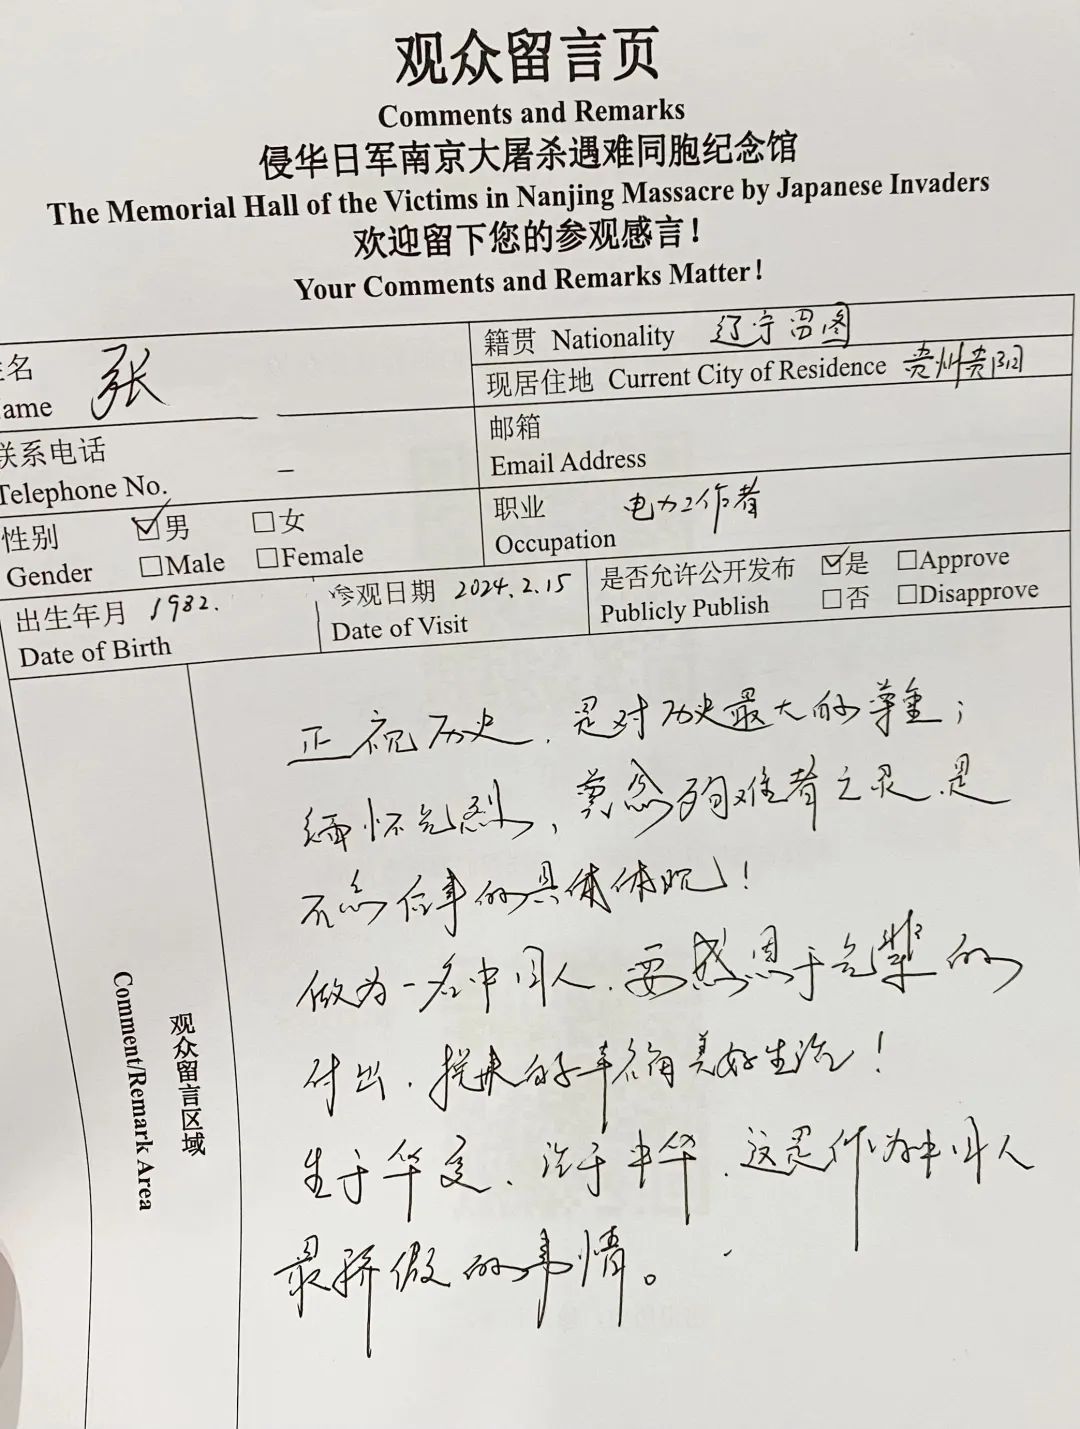 观众留言页
Comments and Remarks
侵华日军南京大屠杀遇难同胞纪念馆
The Memorial Hall of the Victims in Nanjing Massacre by Japanese Invaders
欢迎留下您的参观感言！
Your Comments and Remarks Matter！
名 张
ame
籍贯 Nationality 辽宁昌图
现居住地 Current City of Residence 贵州贵阳
联系电话
Telephone No.
邮箱
Email Address
性别 ☑男 □女
Gender □Male □Female
职业 电力工作者
Occupation
出生年月 1982.
Date of Birth
参观日期 2024.2.15
Date of Visit
是否允许公开发布 ☑是 □Approve
Publicly Publish □否 □Disapprove
观众留言区域
Comment/Remark Area
正视历史，是对历史最大的尊重；
缅怀先烈，奠念殉难者之灵，是
不忘往事的具体体现！
做为一名中国人，要感恩于先辈的
付出，换来的幸福美好生活！
生于华夏、活于中华，这是作为中国人
最骄傲的事情。